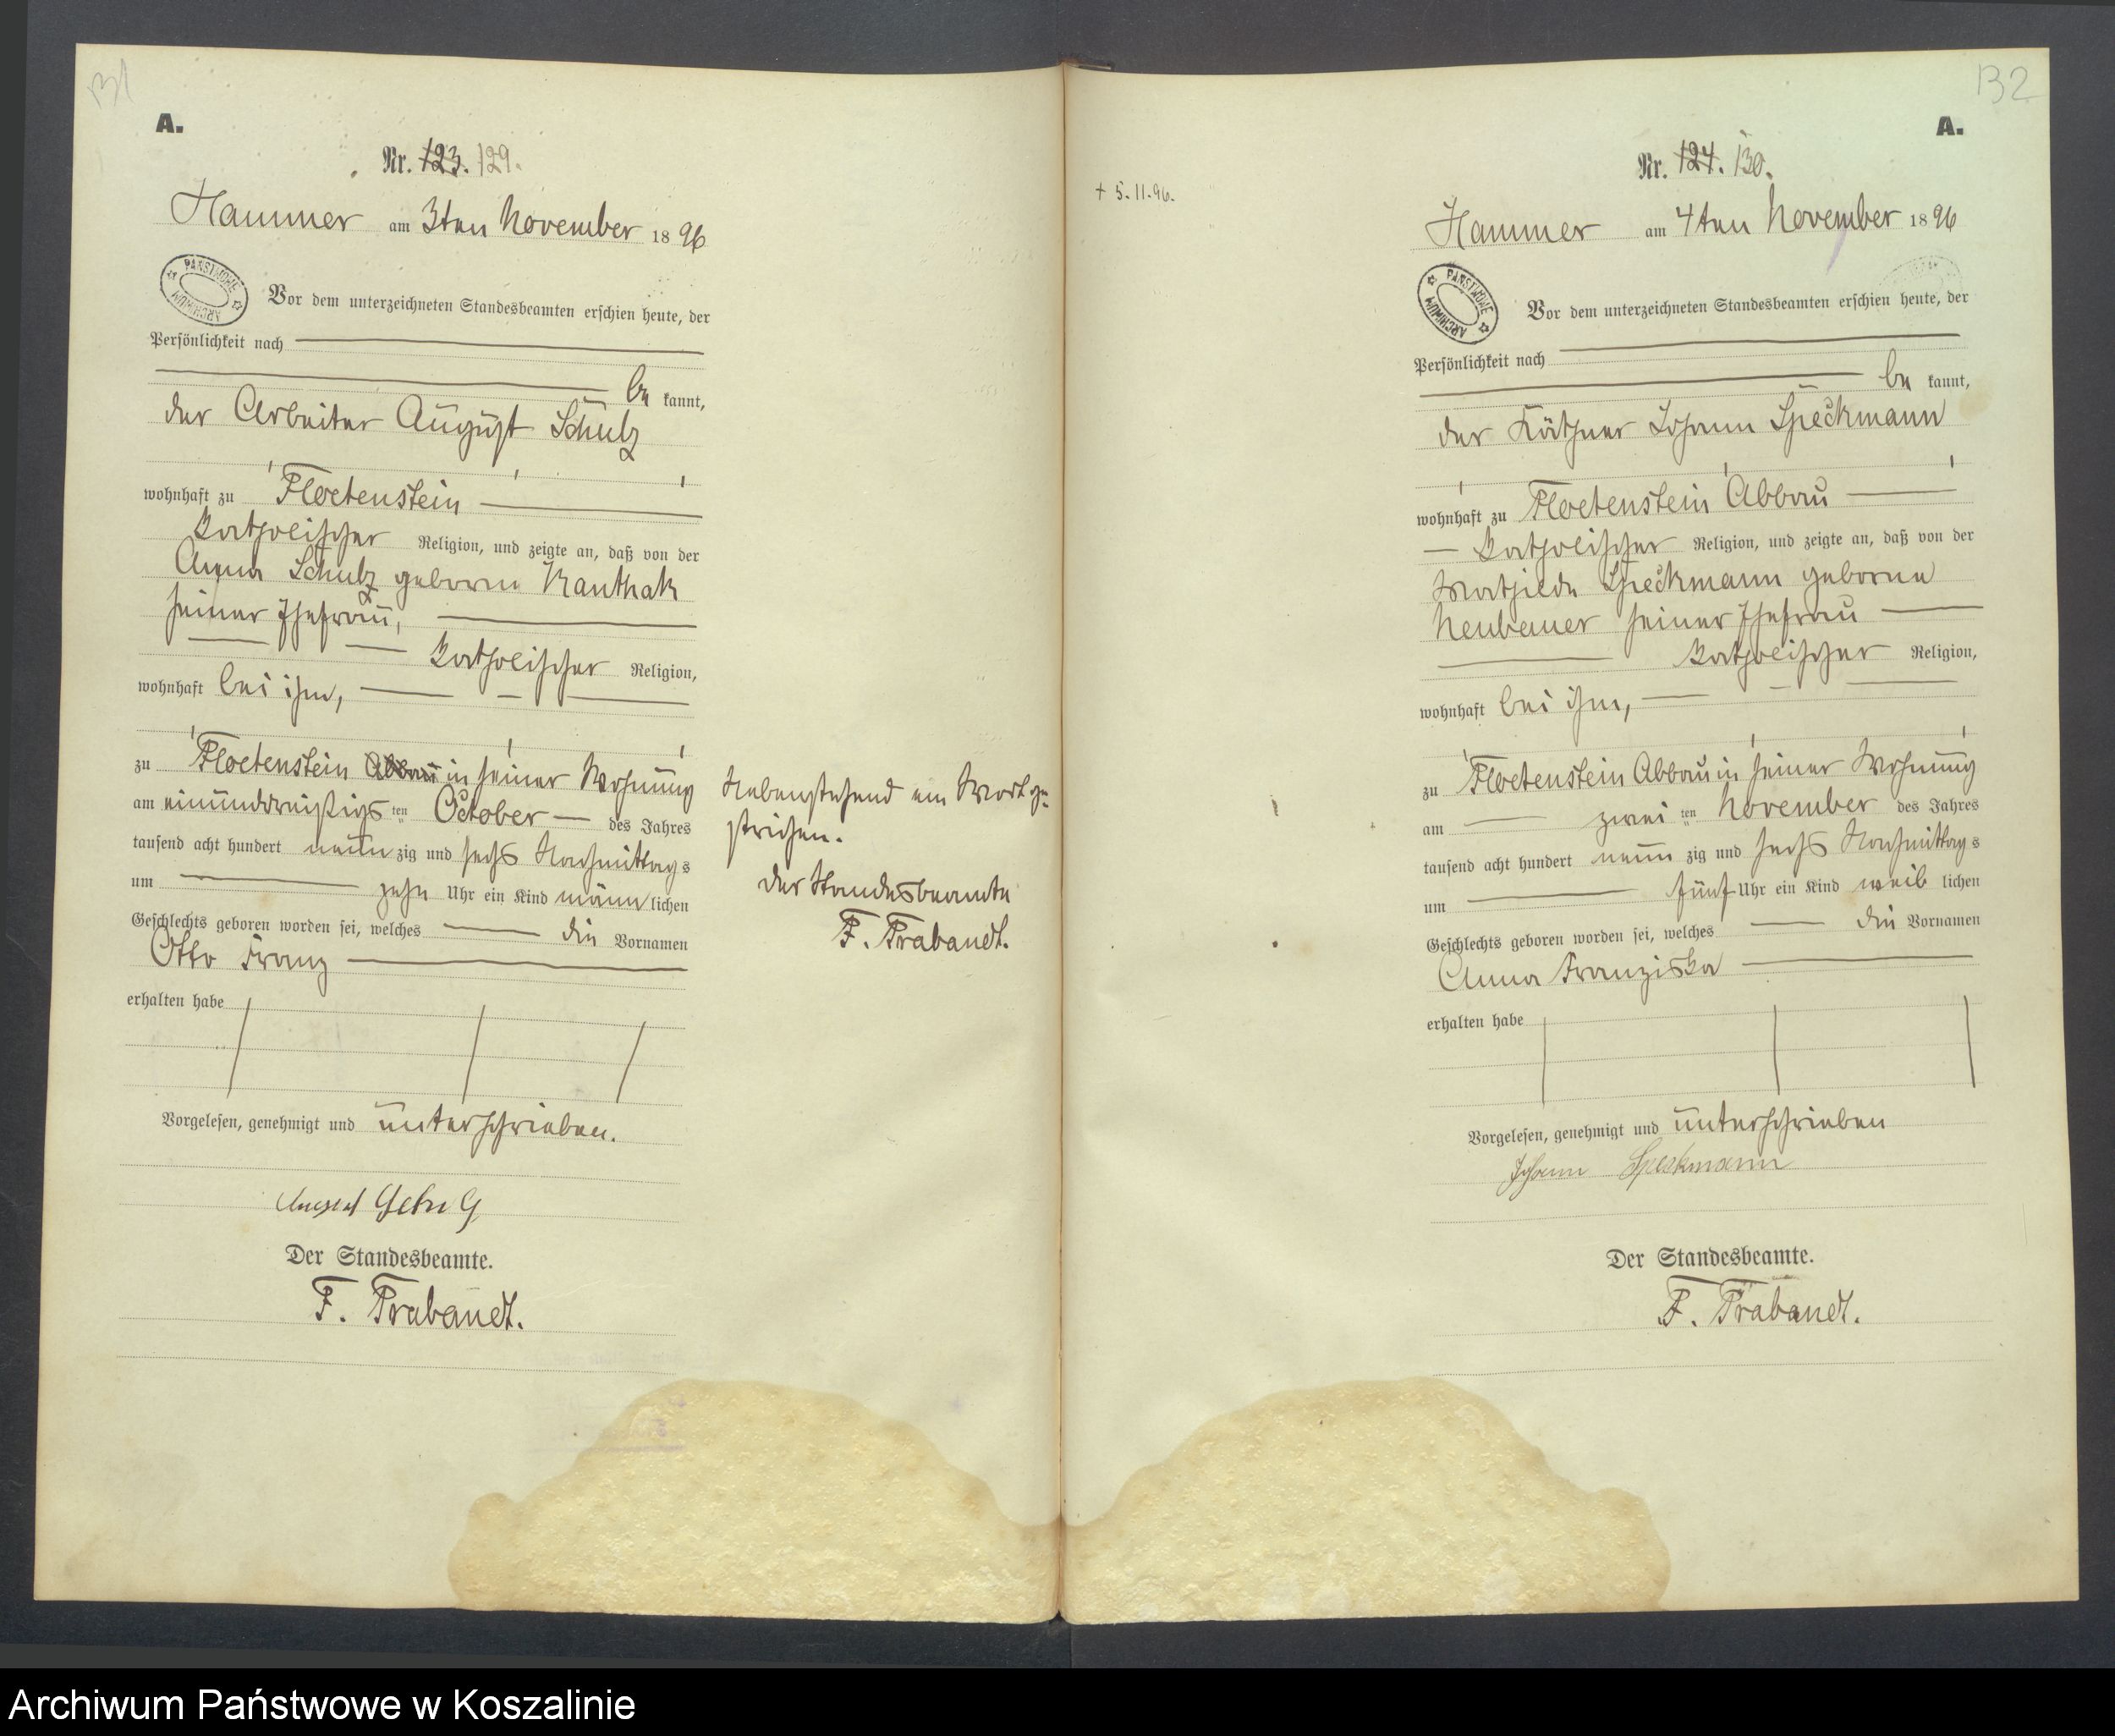 131
A.
Nr. 123. 129.
Hammer am 3ten November 1896
PAŃSTWOWE ARCHIWUM
Vor dem unterzeichneten Standesbeamten erschien heute, der
Persönlichkeit nach
be kannt,
der Arbeiter August Schulz
wohnhaft zu Floetenstein
katholischer Religion, und zeigte an, daß von der
Anna Schulz geborne Kanthak
seiner Ehefrau,
katholischer Religion,
wohnhaft bei ihm,
zu Floetenstein Abbau in seiner Wohnung
am einunddreißigs ten October des Jahres
tausend acht hundert neun zig und sechs Nachmittag s
um zehn Uhr ein Kind männ lichen
Geschlechts geboren worden sei, welches die Vornamen
Otto Franz
erhalten habe
Vorgelesen, genehmigt und unterschrieben.
August
Der Standesbeamte.
F. Trabandt.
Nebenstehend ein Wort ge-
strichen.
Der Standesbeamte
F. Trabandt.
132
A.
Nr. 124. 130.
+ 5.11.96.
Hammer am 4ten November 1896
PAŃSTWOWE ARCHIWUM
Vor dem unterzeichneten Standesbeamten erschien heute, der
Persönlichkeit nach
be kannt,
der Käthner Johann Speckmann
wohnhaft zu Floetenstein Abbau
katholischer Religion, und zeigte an, daß von der
Mathilde Speckmann geborne
Neubauer seiner Ehefrau
katholischer Religion,
wohnhaft bei ihm,
zu Floetenstein Abbau in seiner Wohnung
am zwei ten November des Jahres
tausend acht hundert neun zig und sechs Nachmittag s
um fünf Uhr ein Kind weib lichen
Geschlechts geboren worden sei, welches die Vornamen
Anna Franziska
erhalten habe
Vorgelesen, genehmigt und unterschrieben
Johann Speckmann
Der Standesbeamte.
F. Trabandt.
Archiwum Państwowe w Koszalinie